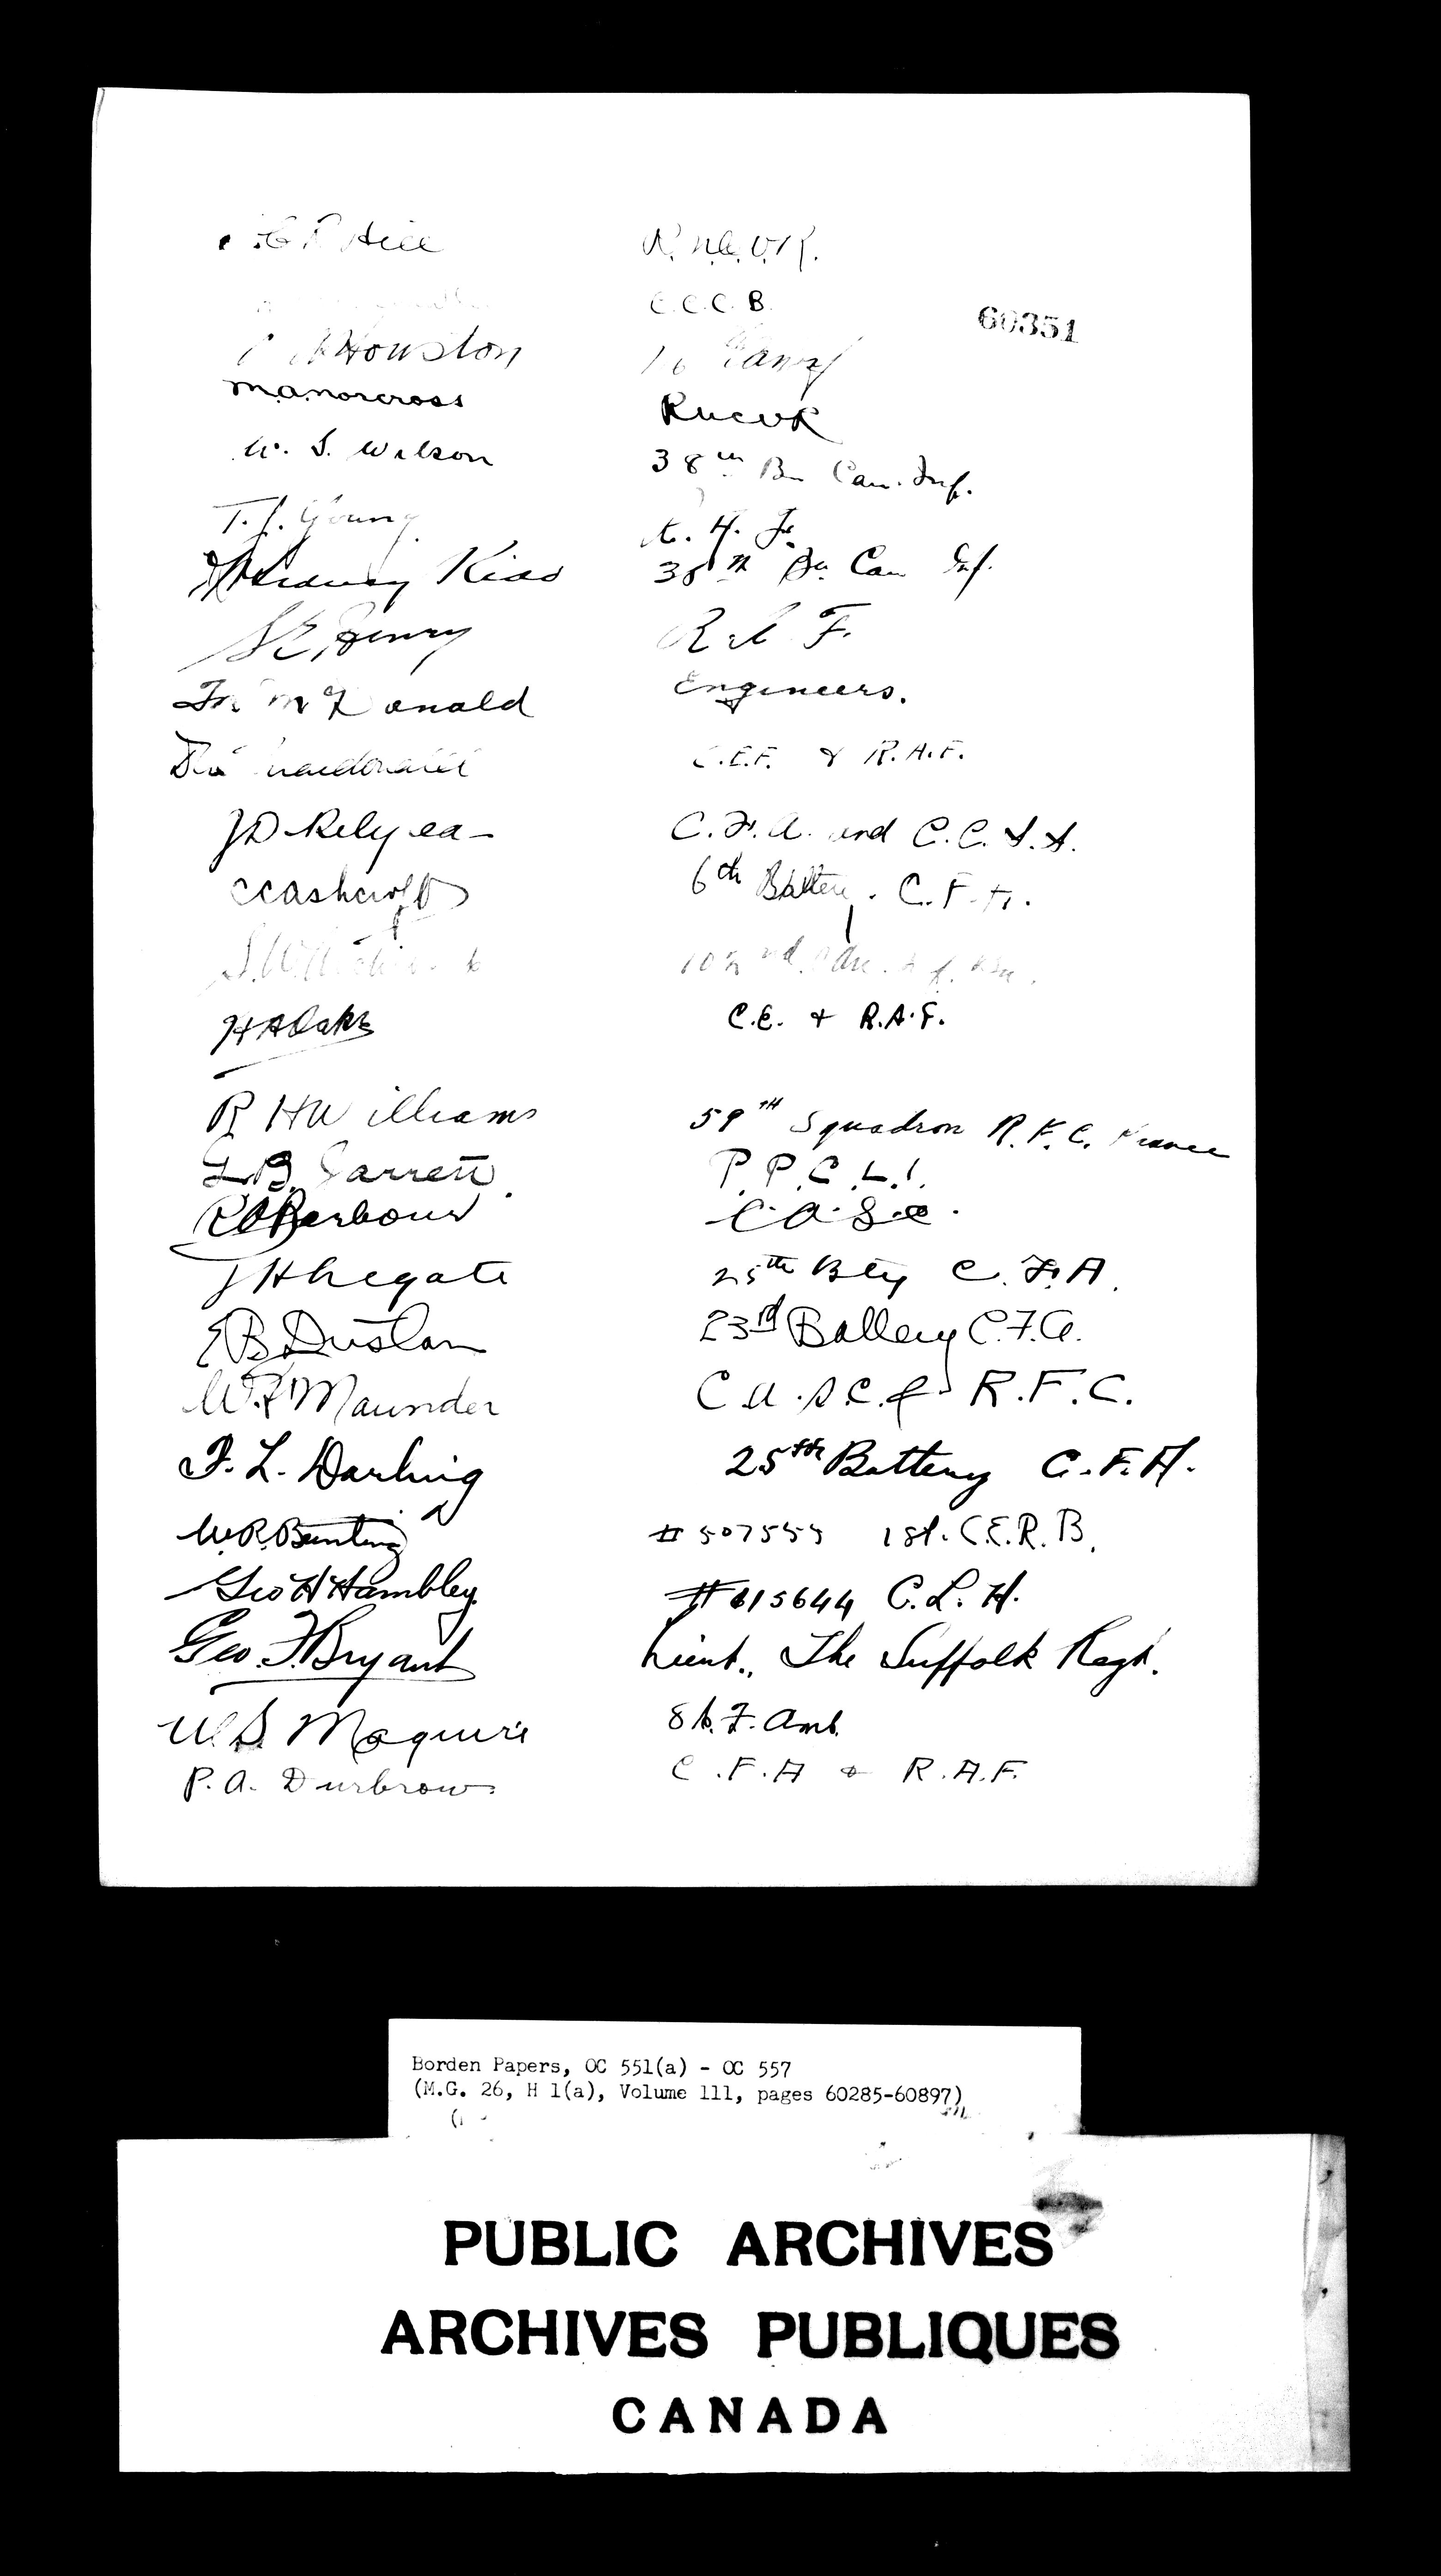 Hill R.N.C.V.R.
C.C.C.B.
60351
Houston
M.A. Norcross RNCVR
W. S. Wilson 38th Bn Can. Inf.
T. J. Young
Kidd 38th Bn Can Inf.
S E Henry R.A.F.
McDonald Engineers.
Macdonald C.E.F. & R.A.F.
J D Relyea C.F.A. and C.C.S.
C C Ashcroft 6th Battery. C.F.A.
102nd
H A Oaks C.E. & R.A.F.
R H Williams 59TH Squadron R.F.C. France
L.B. Jarrett. P.P.C.L.I.
Barbour C.A.S.C.
J H Legate 25th Bty C.F.A.
E B Dustan 23rd Battery C.F.A.
Maunder C.A.S.C. & R.F.C.
F. L. Darling 25th Battery C.F.A.
W.R. Bunting # 507555 1st. C.E.R.B.
Geo H Hambley. # 615644 C.L.H.
Geo. F. Bryant Lieut., The Suffolk Regt.
W.S. Maguire F. Amb.
P. A. Durbrow. C.F.A & R.A.F.
Borden Papers, OC 551(a) - OC 557
(M.G. 26, H 1(a), Volume 111, pages 60285-60897)
PUBLIC ARCHIVES
ARCHIVES PUBLIQUES
CANADA